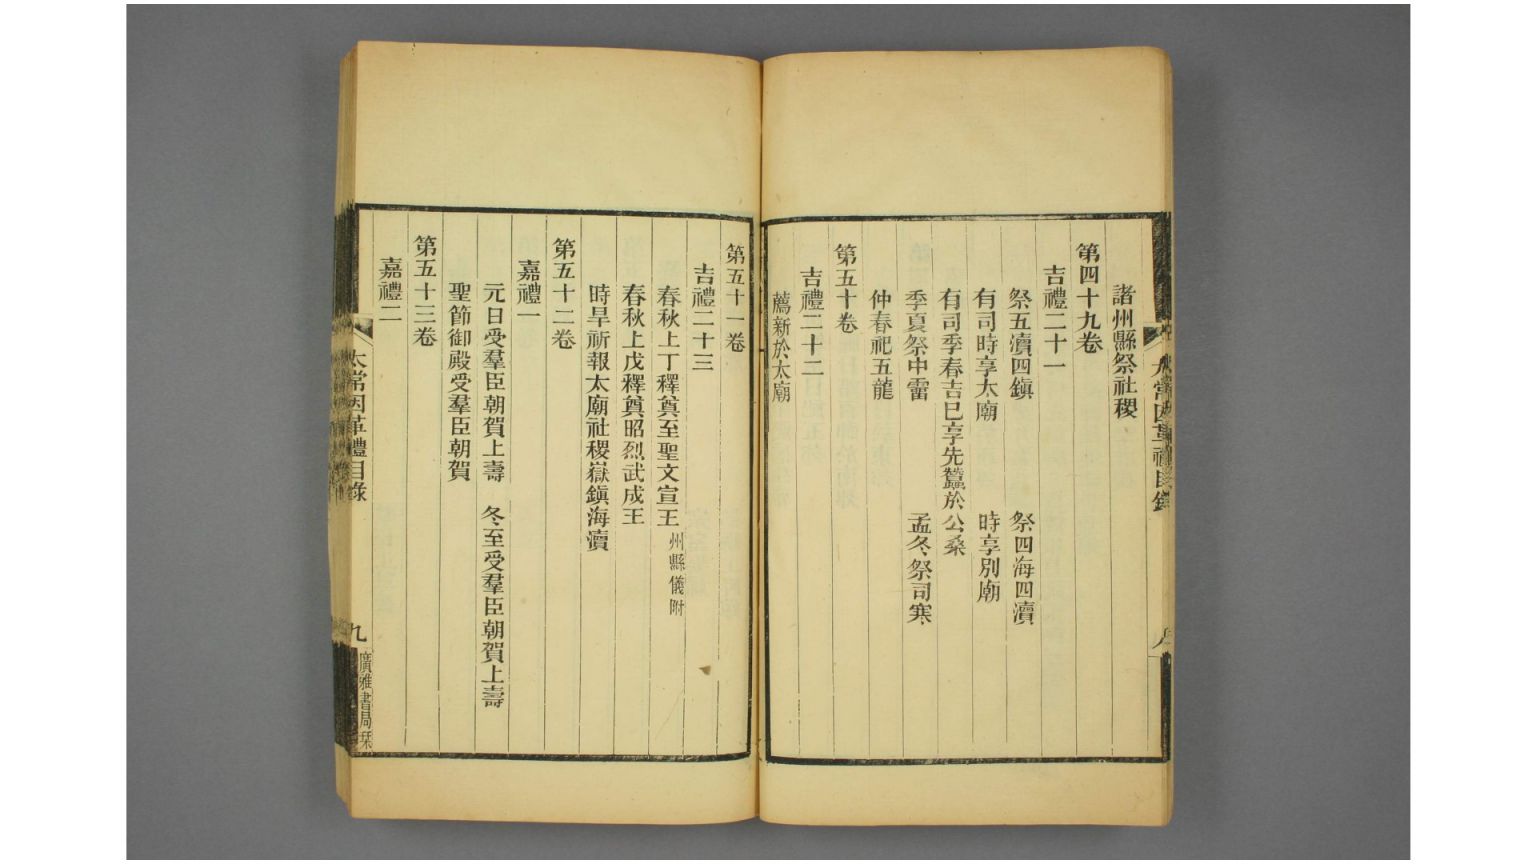 諸州縣祭社稷
第四十九卷
吉禮二十一
祭五瀆四鎭　祭四海四瀆
有司時享太廟　時享別廟
有司季春吉巳享先蠶於公桑
季夏祭中霤　孟冬祭司寒
仲春祀五龍
第五十卷
吉禮二十二
薦新於太廟
第五十一卷
吉禮二十三
春秋上丁釋奠至聖文宣王州縣儀附
春秋上戊釋奠昭烈武成王
時旱祈報太廟社稷嶽鎭海瀆
第五十二卷
嘉禮一
元日受羣臣朝賀上壽　冬至受羣臣朝賀上壽
聖節御殿受羣臣朝賀
第五十三卷
嘉禮二
太常因革禮目錄
九
廣雅書局栞